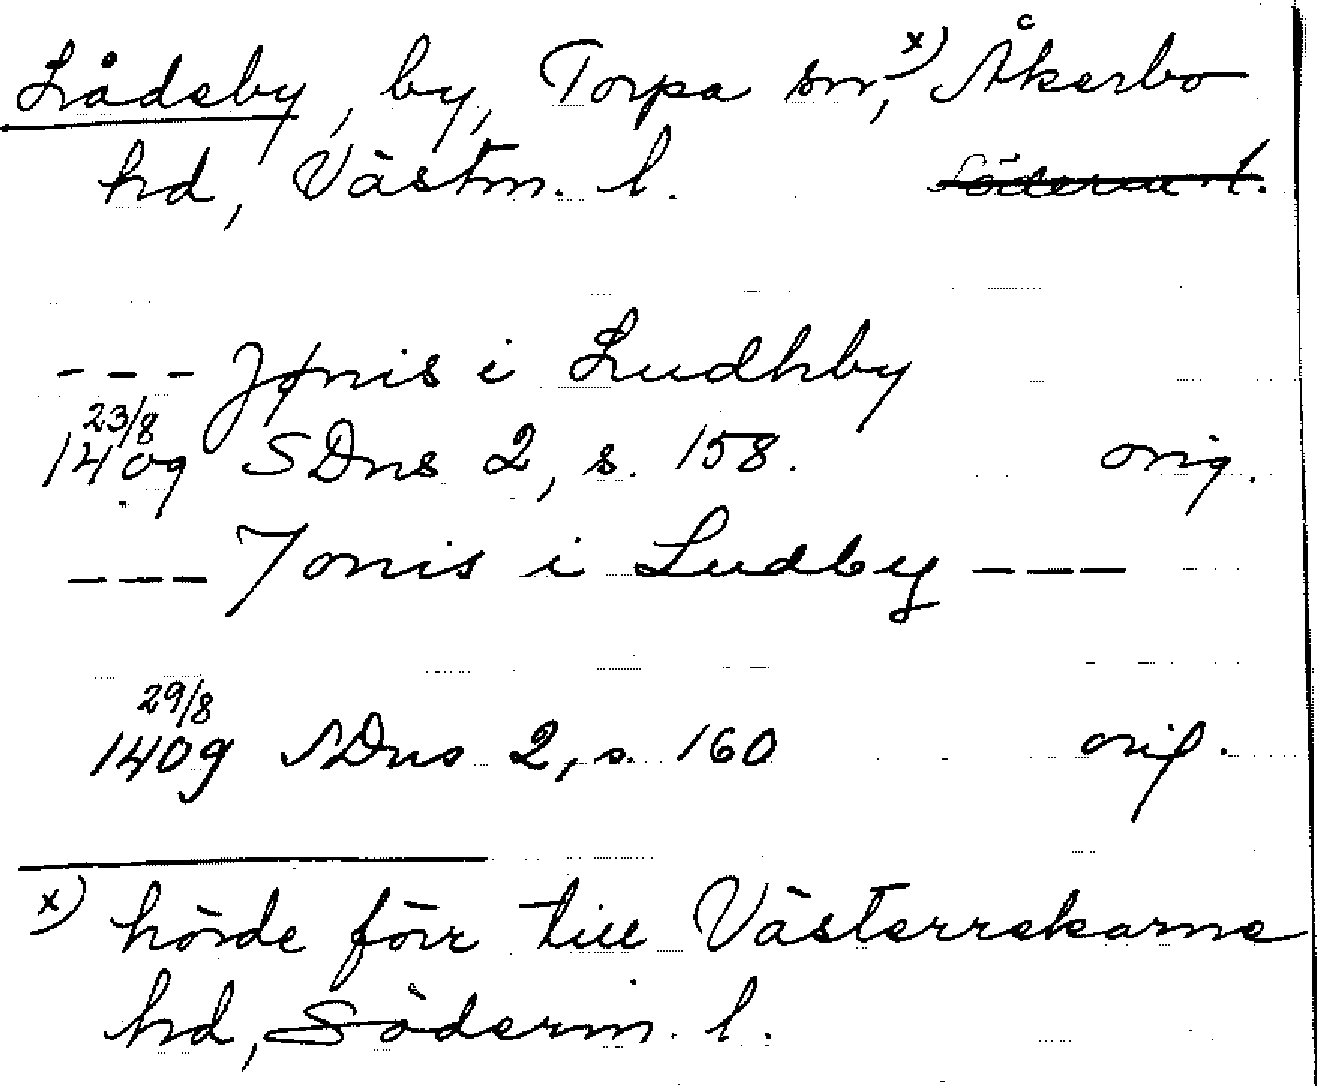 Lådeby, by, Torpa sn,x) Åkerbo
hd, Västm. l. Söderm. l.
--- Jønis i Ludhby
23/8
1409 SDns 2, s. 158. orig.
--- Jonis i Ludby ---
29/8
1409 SDns 2, s. 160 orig.
x) hörde förr till Västerrekarne
hd, Söderm. l.